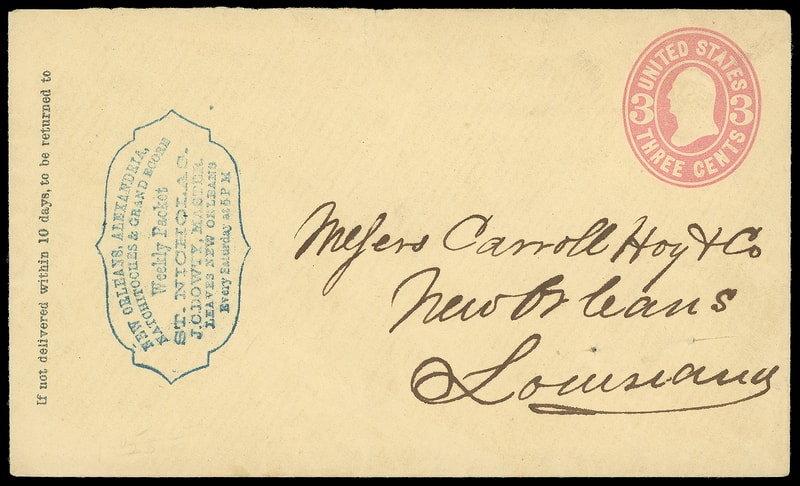 If not delivered within 10 days, to be returned to
NEW ORLEANS, ALEXANDRIA,
NATCHITOCHES & GRAND ECORE
Weekly Packet
ST. NICHOLAS.
J.C. DOWTY, MASTER.
LEAVES NEW ORLEANS
Every Saturday at 5 P M
UNITED STATES
3 3
THREE CENTS
Messrs Carroll Hoy & Co
New Orleans
Louisiana